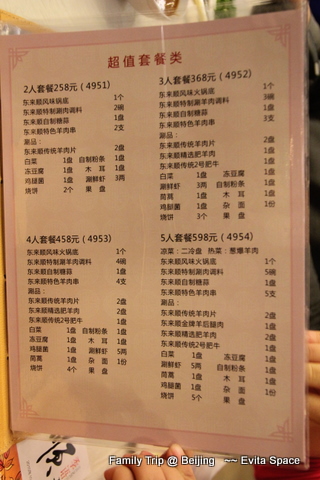 超值套餐类
2人套餐258元（4951）
东来顺风味锅底 1个
东来顺特制涮肉调料 2碗
东来顺自制糖蒜 1盘
东来顺特色羊肉串 2支
涮品：
东来顺传统羊肉片 2盘
白菜 1盘 自制粉条 1盘
冻豆腐 1盘 木耳 1盘
鸡腿菌 1盘 涮鲜虾 3两
烧饼 2个 果盘
3人套餐368元（4952）
东来顺风味火锅底 1个
东来顺特制涮羊肉调料 3碗
东来顺自制糖蒜 1盘
东来顺特色羊肉串 3支
涮品：
东来顺传统羊肉片 2盘
东来顺精选肥羊肉 1盘
东来顺传统2号肥牛 1盘
白菜 1盘 冻豆腐 1盘
涮鲜虾 3两 自制粉条 1盘
茼蒿 1盘 木耳 1盘
鸡腿菌 1盘 杂面 1份
烧饼 3个 果盘
4人套餐458元（4953）
东来顺风味火锅底 1个
东来顺特制涮羊肉调料 4碗
东来顺自制糖蒜 1盘
东来顺特色羊肉串 4支
涮品：
东来顺传统羊肉片 2盘
东来顺精选肥羊肉 2盘
东来顺传统2号肥牛 1盘
白菜 1盘 自制粉条 1盘
冻豆腐 1盘 木耳 1盘
鸡腿菌 1盘 涮鲜虾 5两
茼蒿 1盘 杂面 1份
烧饼 4个 果盘
5人套餐598元（4954）
凉菜：二冷盘 热菜：葱爆羊肉
东来顺风味火锅底 1个
东来顺特制涮羊肉调料 5碗
东来顺自制糖蒜 1盘
东来顺特色羊肉串 5支
涮品：
东来顺传统羊肉片 2盘
东来顺金牌羊后腿肉 1盘
东来顺精选肥羊肉 2盘
东来顺传统2号肥牛 1盘
白菜 1盘 冻豆腐 1盘
涮鲜虾 5两 自制粉条 1盘
茼蒿 1盘 木耳 1盘
鸡腿菌 1盘 杂面 1份
烧饼 5个 果盘
Family Trip @ Beijing ~~ Evita Space